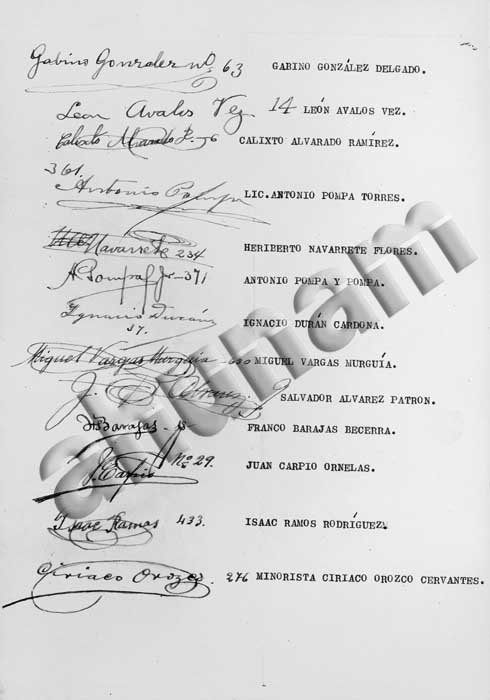 Gabino Gonzalez nº. 63 GABINO GONZÁLEZ DELGADO.
Leon Avalos Vez 14 LEÓN AVALOS VEZ.
Calixto Alvarado R. 56 CALIXTO ALVARADO RAMÍREZ.
361.
Antonio Pompa LIC. ANTONIO POMPA TORRES.
Navarrete 234 HERIBERTO NAVARRETE FLORES.
A Pompa y 371 ANTONIO POMPA Y POMPA.
Ignacio Durán IGNACIO DURÁN CARDONA.
37.
Miguel Vargas Murguia MIGUEL VARGAS MURGUÍA.
J. SALVADOR ALVAREZ PATRON.
Barajas FRANCO BARAJAS BECERRA.
J. Carpio Nº 29. JUAN CARPIO ORNELAS.
Isaac Ramos 433. ISAAC RAMOS RODRÍGUEZ.
Ciriaco Orozco. 276 MINORISTA CIRIACO OROZCO CERVANTES.